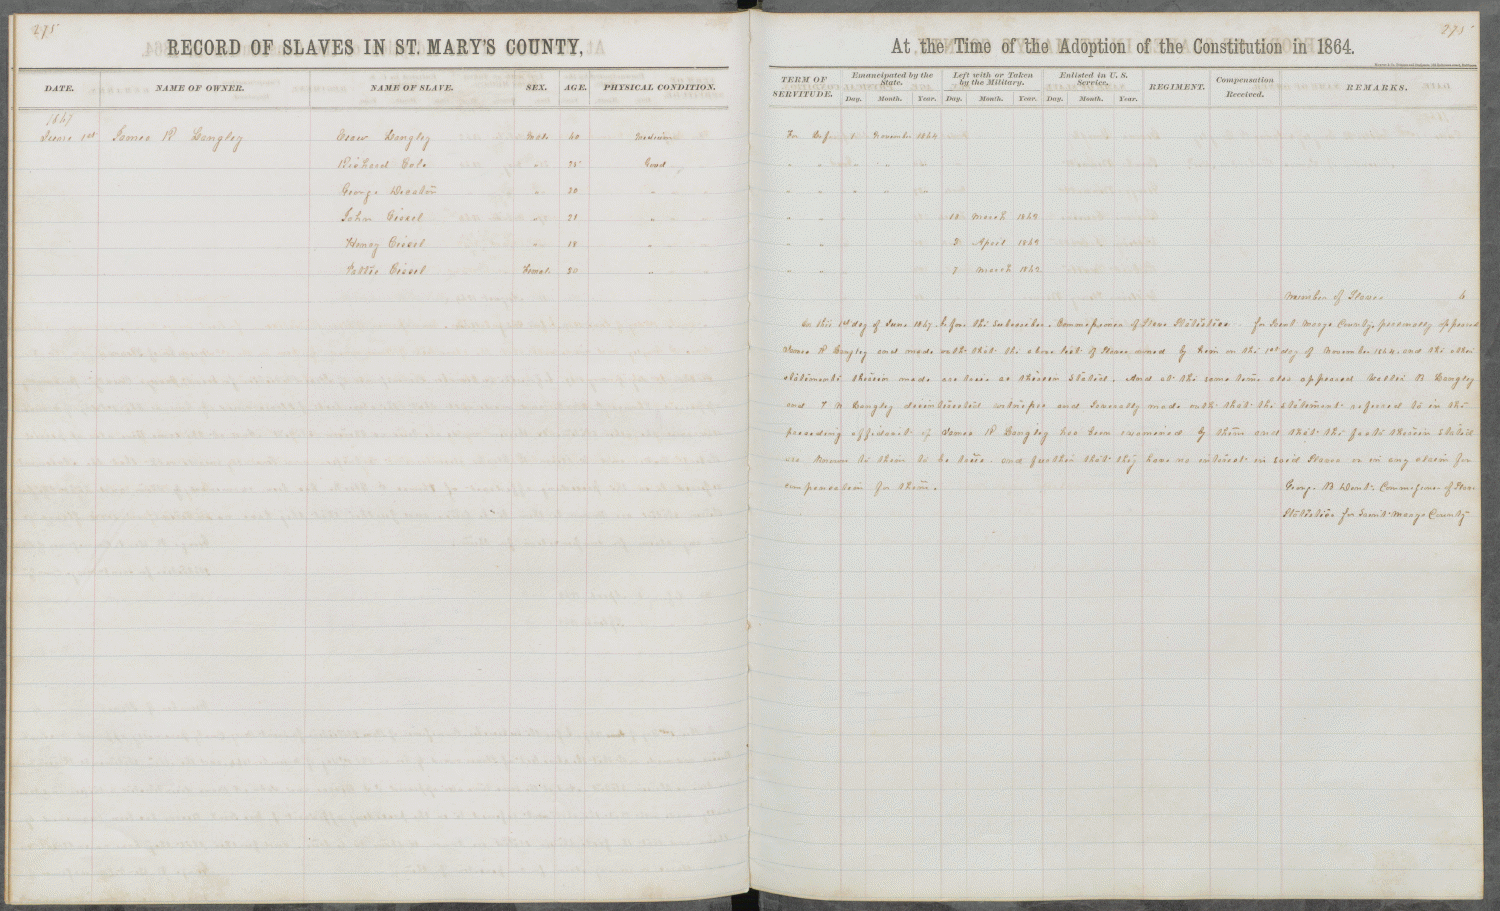 275
RECORD OF SLAVES IN ST. MARY'S COUNTY,
DATE. NAME OF OWNER. NAME OF SLAVE. SEX. AGE. PHYSICAL CONDITION.
1867
June 1st James R Langley Langley Male 40 Medium
Richard Cole " 25 Good
George " 30 "
John Cissel " 21 "
Henry Cissel " 18 "
Cissel Female 50 "
275
At the Time of the Adoption of the Constitution in 1864.
TERM OF SERVITUDE. Emancipated by the State. Left with or Taken by the Military. Enlisted in U. S. Service. REGIMENT. Compensation Received. REMARKS.
Day. Month. Year. Day. Month. Year. Day. Month. Year.
For life 1 November 1864
" " " " "
" " " "
" " 10 March
" " April
" " 7 March
Number of Slaves 6
On this 1st day of June 1867 before the Subscriber. Commissioner of Slave Statistics. for Saint Marys County, personally appeared
James R Langley and made oath that the above list of Slaves owned by him on the 1st day of November 1864. and the other
statements therein made are true as therein stated. And at the same time also appeared B Langley
and Langley disinterested witnesses and Severally made oath that the statement referred to in the
preceding affidavit of James R Langley has been examined by them and that the facts therein stated
are known to them to be true. and further that they have no interest in said Slaves or in any claim for
compensation for them. George B Dent. Commissioner of Slave
Statistics for Saint Marys County